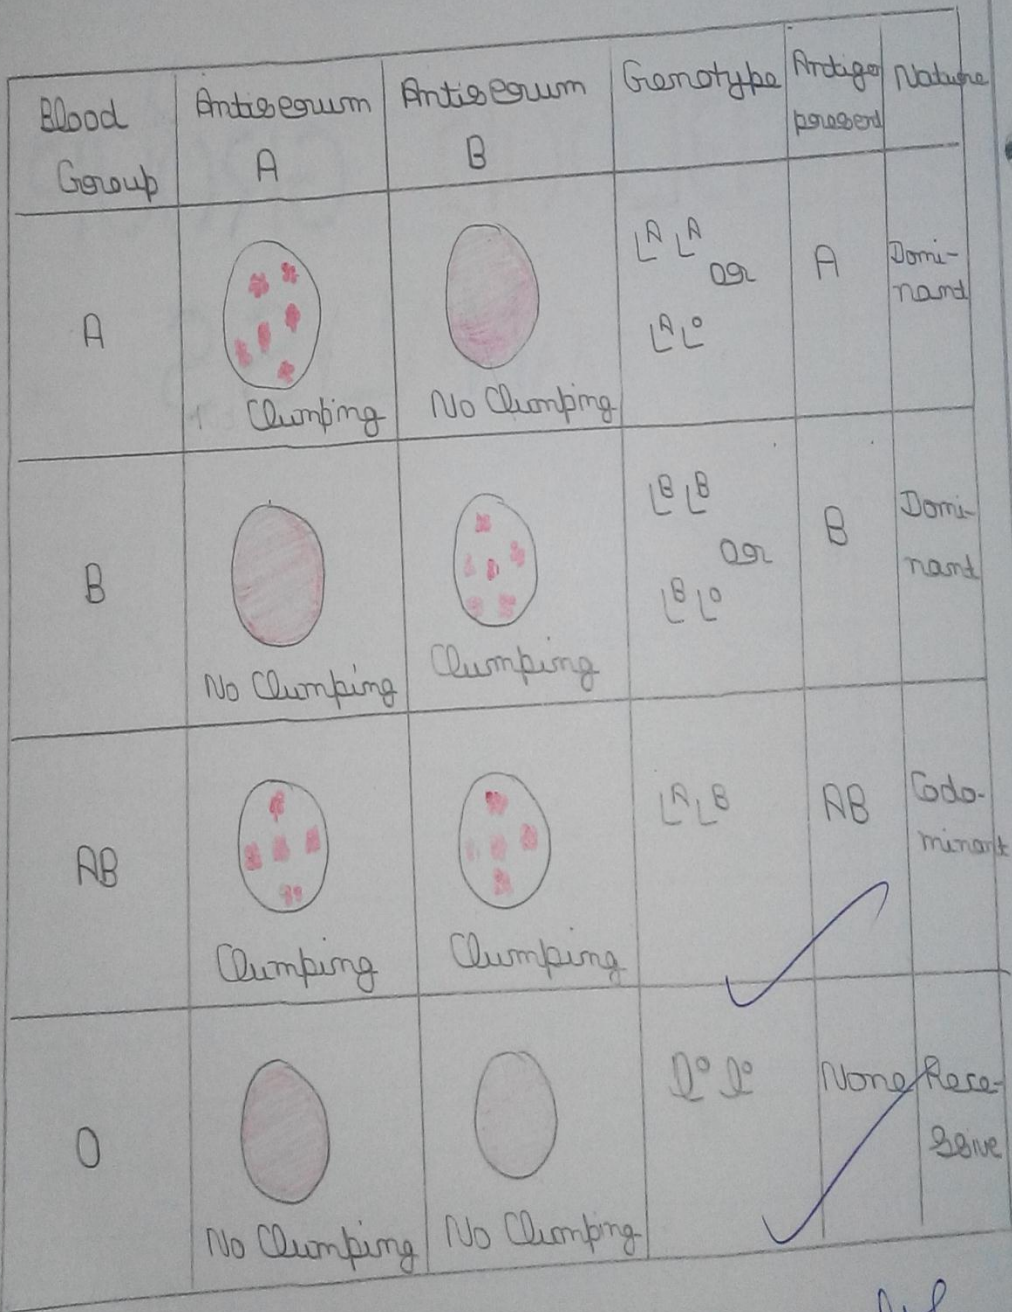 Blood Group
Antiserum A
Antiserum B
Genotype
Antigen present
Nature
A
Clumping
No Clumping
Lᴬ Lᴬ
or
Lᴬ L⁰
A
Domi-
nant
B
No Clumping
Clumping
Lᴮ Lᴮ
or
Lᴮ L⁰
B
Domi-
nant
AB
Clumping
Clumping
Lᴬ Lᴮ
AB
Codo-
minant
O
No Clumping
No Clumping
l⁰ l⁰
None
Rece-
ssive